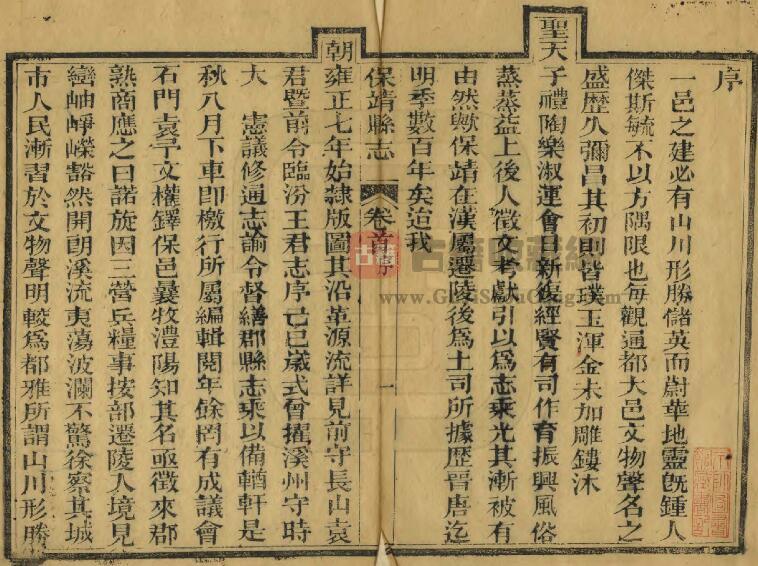 序
一邑之建必有山川形勝儲英而蔚華地靈旣鍾人
傑斯毓不以方隅限也每觀通都大邑文物聲名之
盛歷久彌昌其初則皆璞玉渾金未加雕鏤沐
聖天子禮陶樂淑運會日新復經賢有司作育振興風俗
蒸蒸益上後人徵文考獻引以爲志乘光其漸被有
由然歟保靖在漢屬遷陵後爲土司所據歷晉唐迄
明季數百年矣迨我
保靖縣志 卷首 序 一
朝雍正七年始隸版圖其沿革源流詳見前守長山袁
君曁前令臨汾王君志序己巳歲式會擢溪州守時
大 憲議修通志諭令督繕郡縣志乘以備輶軒是
秋八月下車卽檄行所屬編輯閱年餘罔有成議會
石門袁予文權鐸保邑曩牧澧陽知其名亟徵來郡
熟商應之曰諾旋因三營兵糧事按部遷陵入境見
巒岫崢嶸豁然開朗溪流夷蕩波瀾不驚徐察其城
市人民漸習於文物聲明較爲都雅所謂山川形勝
古籍
古籍收藏網
www.GuJiShuCang.com